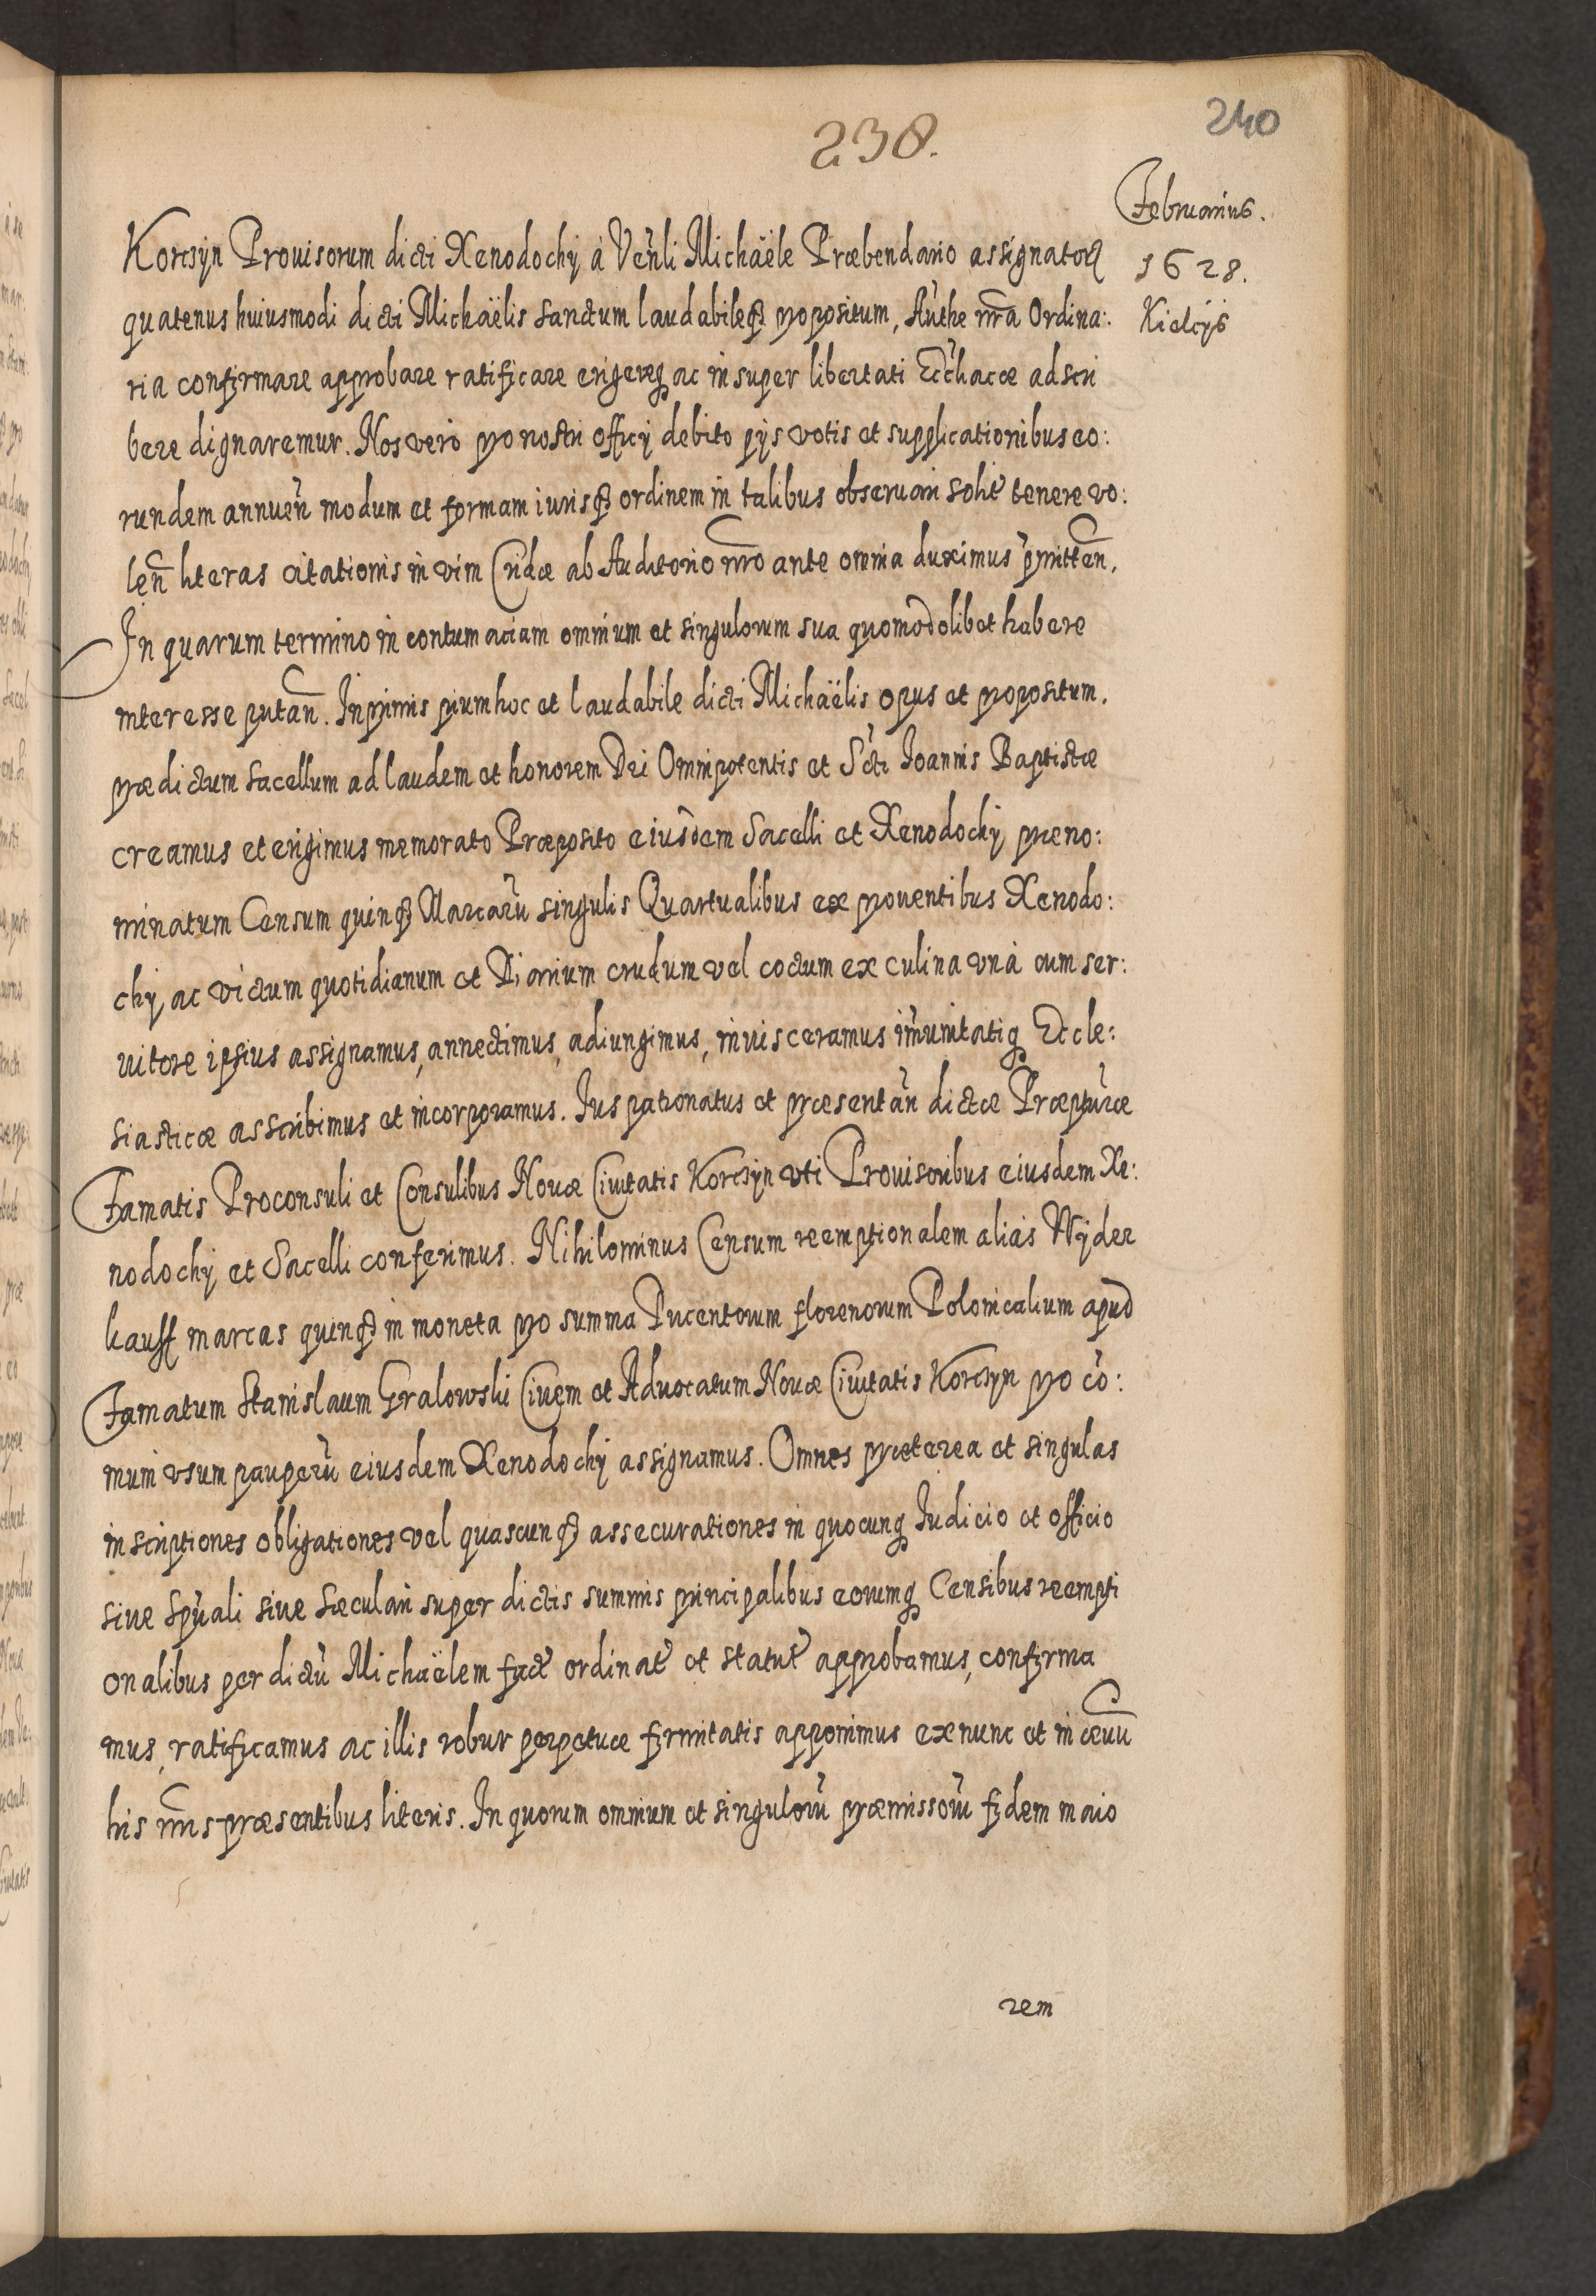 238.
240
Februarius.
1628.
Kielcijs
Korcsÿn Prouisorum dicti Xenodochÿ à Venli Michaële Præbendario assignatorꝝ
quatenus huiusmodi dicti Michaëlis sanctum laudabileqꝫ propositum, Authe nr̃a Ordina:
ria confirmare approbare ratificare erigereqꝫ ac insuper libertati Ecchacæ adscri
bere dignaremur. Nos vero pro nostri officÿ debito pÿs votis et supplicationibus eo:
rundem annuen̄ modum et formam iurisqꝫ ordinem in talibus obseruari solit̃ tenere vo:
len̄ literas citationis in vim Cridæ ab Auditorio nr̃o ante omnia duximus pmitten̄.
In quarum termino in contumaciam omnium et singulorum sua quomodolibet habere
interesse putan̄. Inprimis pium hoc et laudabile dicti Michaëlis opus et propositum,
prædictum sacellum ad laudem et honorem Dei Omnipotentis et Scti Ioannis Baptistæ
creamus et erigimus memorato Præposito eiusdem Sacelli et Xenodochÿ præno:
minatum Censum quinqꝫ Marcarũ singulis Quartualibus ex prouentibus Xenodo:
chÿ, ac victum quotidianum et Diarium crudum vel coctum ex culina vnà cum ser:
uitore ipsius assignamus, annectimus, adiungimus, inuisceramus im̃unitatiqꝫ Eccle:
siasticæ asscribimus et incorporamus. Ius patronatus et præsentan̄ dictæ Præpturæ
Famatis Proconsuli et Consulibus Nouæ Ciuitatis Korcsÿn vti Prouisoribus eiusdem Xe:
nodochÿ et Sacelli conferimus. Nihilominus Censum reemptionalem aliàs Wÿder
kauff marcas quinqꝫ in moneta pro summa Ducentorum florenorum Polonicalium apud
Famatum Stanislaum Gralowski Ciuem et Aduocatum Nouæ Ciuitatis Korcsÿn pro cõ:
munì vsum pauperũ eiusdem Xenodochÿ assignamus. Omnes præterea et singulas
inscriptiones obligationes vel quascunqꝫ assecurationes in quocunqꝫ Iudicio et officio
siue Spuali siue sæculari super dictis summis principalibus eorumqꝫ Censibus reempti
onalibus per dictũ Michaëlem fact̃ ordinat̃ et statut̃ approbamus, confirma
mus, ratificamus ac illis robur perpetuæ firmitatis apponimus ex nunc et in æuũ
his nr̃is præsentibus literis. In quorum omnium et singulorũ præmissorũ fidem maio
rem